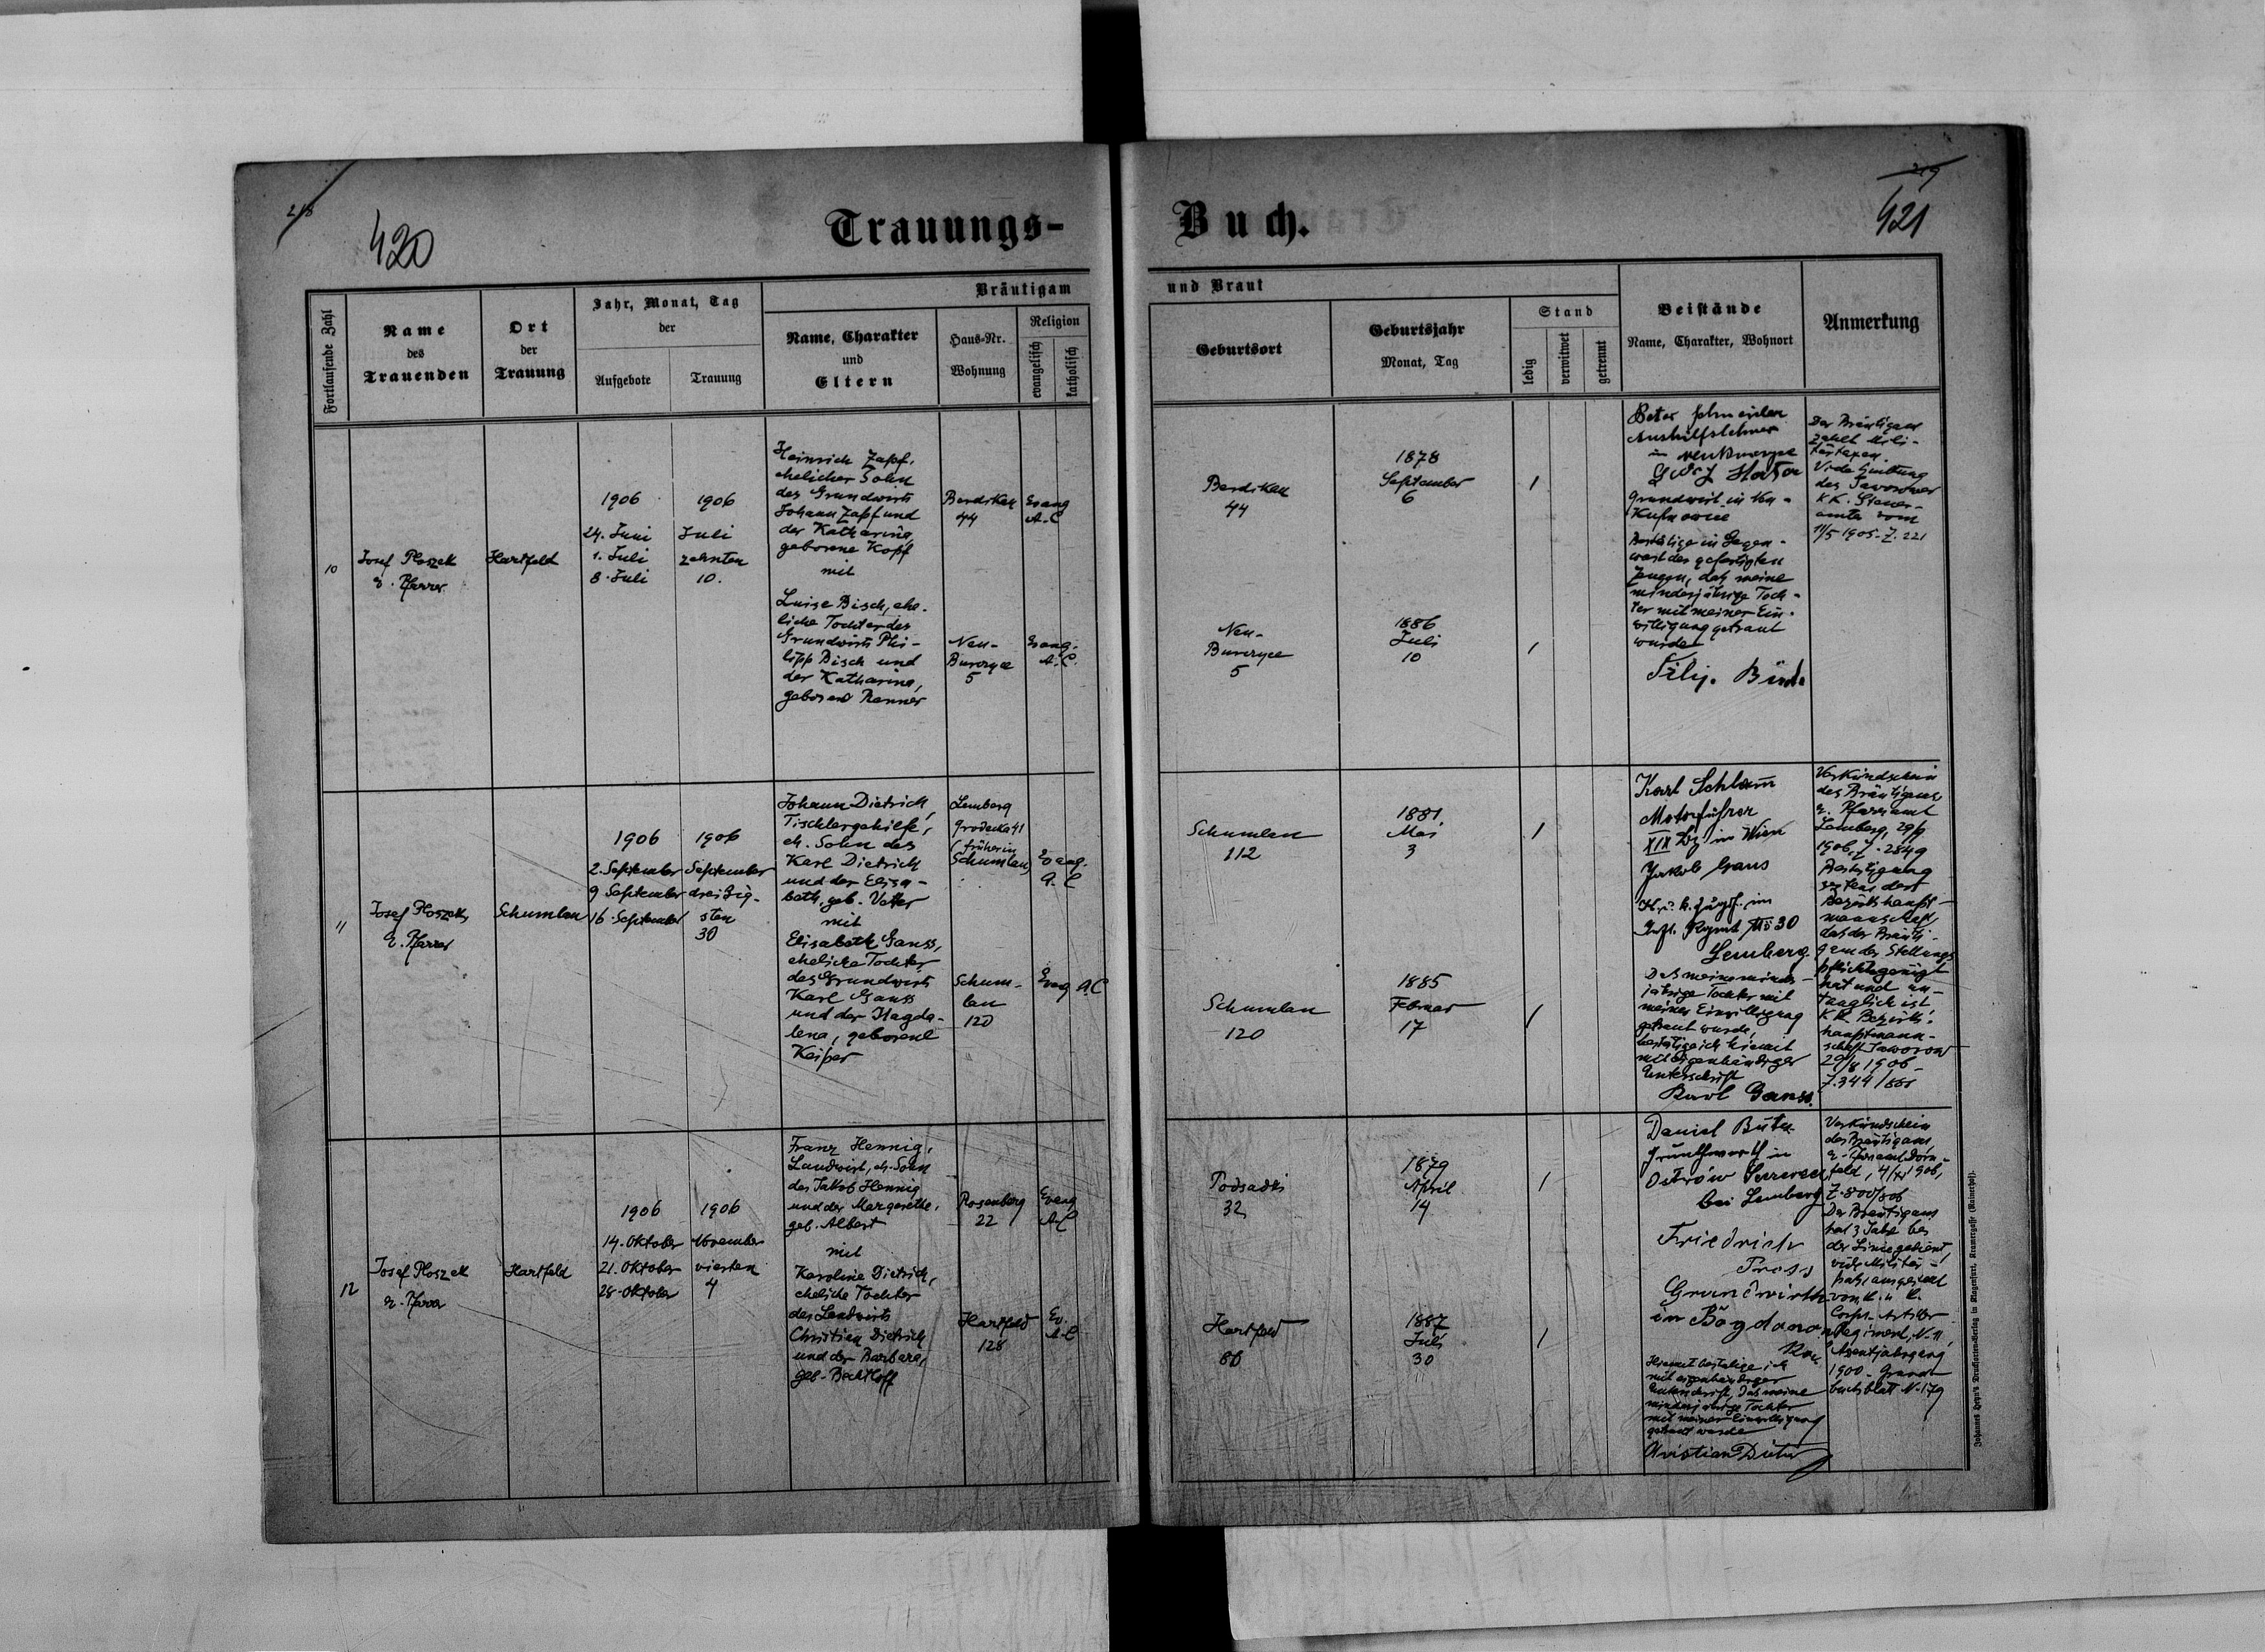 218
420
Trauungs-
Buch.
219
421
Fortlaufende Zahl
Name
des
Trauenden
Ort
der
Trauung
Jahr, Monat, Tag
der
Aufgebote
Trauung
Bräutigam
Name, Charakter
und
Eltern
Haus-Nr.
Wohnung
Religion
evangelisch
katholisch
und Braut
Geburtsort
Geburtsjahr
Monat, Tag
Stand
ledig
verwitwet
getrennt
Beistände
Name, Charakter, Wohnort
Anmerkung
10
Josef Ploszek
e. Pfarrer
Hartfeld
1906
24. Juni
1. Juli
8. Juli
1906
Juli
zehnten
10.
Heinrich Zapf,
ehelicher Sohn
des Grundwirts
Johann Zapf und
der Katharina,
geborene Kopf
mit
Luise Bisch, ehe-
liche Tochter des
Grundwirts Phi-
lipp Bisch und
der Katharina,
geborene Renner
Berdikau
44
Evang
A.C
Neu-
Bunczyce
5
Evang.
A.C.
Berdikau
44
1878
September
6
Neu-
Bunczyce
5
1886
Juli
10
Peter
Aushilfslehrer
in
Grundwirt in
Bestätige in Gegen-
wart der gefertigten
Zeugen, daß meine
minderjährige Toch-
ter mit meiner Ein-
willigung getraut
wurde
Filip.
Der Bräutigam
zahlt Mili-
tärtaxen.
Vide Quittung
des Jaworower
KK. Steuer-
amtes vom
11/5 1905. Z. 221
11
Josef Ploszek,
e. Pfarrer
Schumlau
1906
2. September
9 September
16. September
1906
September
dreißig-
sten
30
Johann Dietrich,
Tischlergehilfe,
eh. Sohn des
Karl Dietrich
und der Elisa-
beth, geb. Vetter
mit
Elisabeth Ganss,
eheliche Tochter
des Grundwirts
Karl Ganss
und der Magda-
lena, geborene
Keiper
Lemberg
Grodecka 41
(früher in
Schumlau)
Evang.
A.C
Schum-
lau
120
Evang A.C
Schumlau
112
1881
Mai
3
Schumlau
120
1885
Februar
17
Karl Schlamm
Motorführer
XIX Bz in Wien
Jakob Gans
K.u.k. Zugsf. im
Inft. Regmt No 30
Lemberg.
Daß meine minder-
jährige Tochter mit
meiner Einwilligung
getraut wurde,
bestätige ich hiemit
mit eigenhändiger
Unterschrift
Karl Ganss.
Verkündschein
des Bräutigams
e. Pfarramt
Lemberg, 29/9
1906, Z. 2849
Bestätigung
seitens der
Bezirkshaupt-
mannschaft,
daß der Bräuti-
gam der Stellungs-
pflicht genügt
hat und un-
tauglich ist.
K.K. Bezirks-
hauptmann-
schaft Jaworow
29/8 1906
12
Josef Ploszek
e. Pfarrer
Hartfeld
1906
14. Oktober
21. Oktober
28. Oktober
1906
November
vierten
4
Franz Hennig,
Landwirt, eh. Sohn
des Jakob Hennig
und der Margarethe,
geb. Albert
mit
Karoline Dietrich,
eheliche Tochter
des Landwirts
Christian Dietrich
und der Barbara,
geb. Bechtloff
Rosenberg
22
Evang
A.C
Hartfeld
128
Ev.
A.C
Podsadki
32
1879
April
14
Hartfeld
86
1887
Juli
30
Daniel
Grundwirth in
Ostrów
bei Lemberg
Friedrich
Pross
Grundwirth
in Bogdanow
Hiemit bestätige ich
mit eigenhändiger
Unterschrift, daß meine
minderjährige Tochter
mit meiner Einwilligung
getraut wurde
Christian
Verkündschein
des Bräutigams,
e. Pfarramt Dorn-
feld, 4/XI 1906,
Z. 800/806
Der Bräutigam
hat 3 Jahr bei
der Linie gedient,
vide Militär-
paß ausgestellt
von K. u. K.
Corps-Artiller
Regiment, N. 11,
Assentjahrgang
1900. Grund-
buchsblatt N. 179
Johannes Heyn's Druckserien-Verlag in Klagenfurt, Kramergasse (Rainerhof).